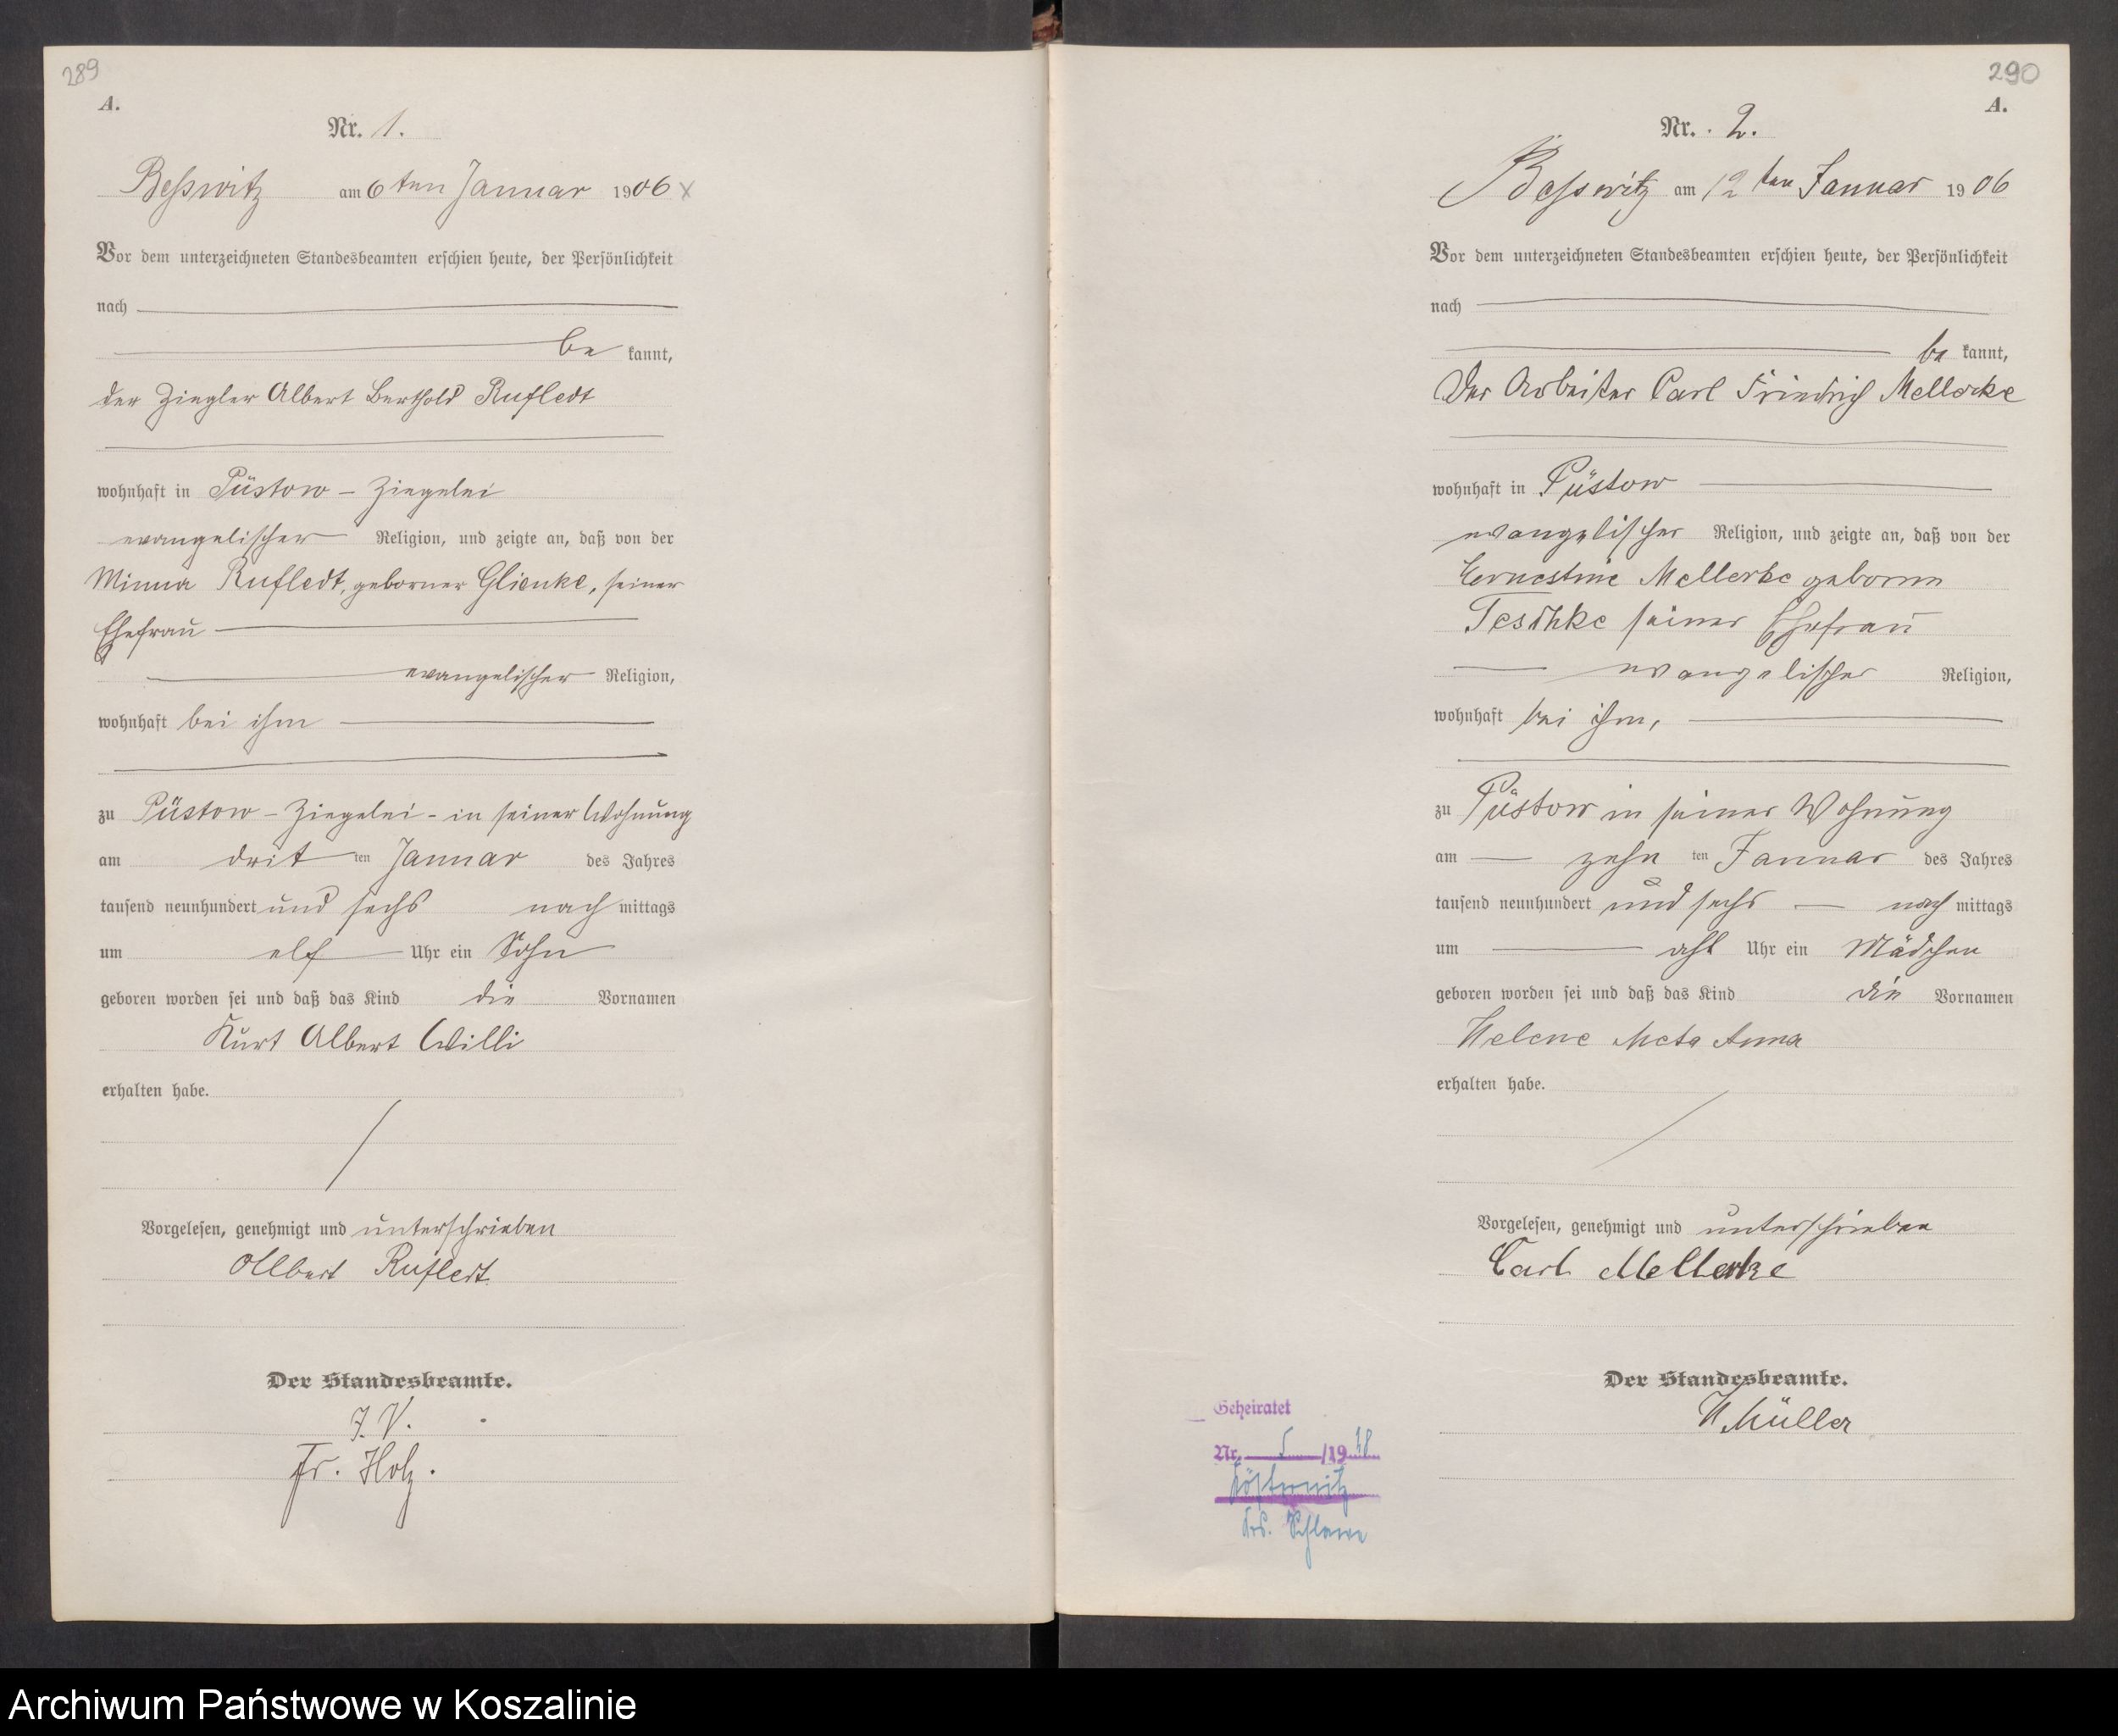 289
A.
Nr. 1.
Beßwitz am 6ten Januar 1906 x
Vor dem unterzeichneten Standesbeamten erschien heute, der Persönlichkeit
nach
be kannt,
der Ziegler Albert Berthold Rufledt
wohnhaft in Püstow - Ziegelei
evangelischer Religion, und zeigte an, daß von der
Minna Rufledt, geborner Glienke, seiner
Ehefrau
evangelischer Religion,
wohnhaft bei ihm
zu Püstow - Ziegelei - in seiner Wohnung
am drit ten Januar des Jahres
tausend neunhundert und sechs nach mittags
um elf Uhr ein Sohn
geboren worden sei und daß das Kind die Vornamen
Kurt Albert Willi
erhalten habe.
Vorgelesen, genehmigt und unterschrieben
Albert Rufledt.
Der Standesbeamte.
J. V.
Fr. Holz.
290
A.
Nr. 2.
Beßwitz am 12ten Januar 1906
Vor dem unterzeichneten Standesbeamten erschien heute, der Persönlichkeit
nach
be kannt,
Der Arbeiter Carl Friedrich Mellerke
wohnhaft in Püstow
evangelischer Religion, und zeigte an, daß von der
Ernestine Mellerke geboren
Teschke seiner Ehefrau
evangelischer Religion,
wohnhaft bei ihm,
zu Püstow in seiner Wohnung
am zehn ten Januar des Jahres
tausend neunhundert und sechs nach mittags
um acht Uhr ein Mädchen
geboren worden sei und daß das Kind die Vornamen
Helene Meta Anna
erhalten habe.
Vorgelesen, genehmigt und unterschrieben
Carl Mellerke
Der Standesbeamte.
H Müller
Geheiratet
Nr. 5 /19
Krs. Schlawe
Archiwum Państwowe w Koszalinie